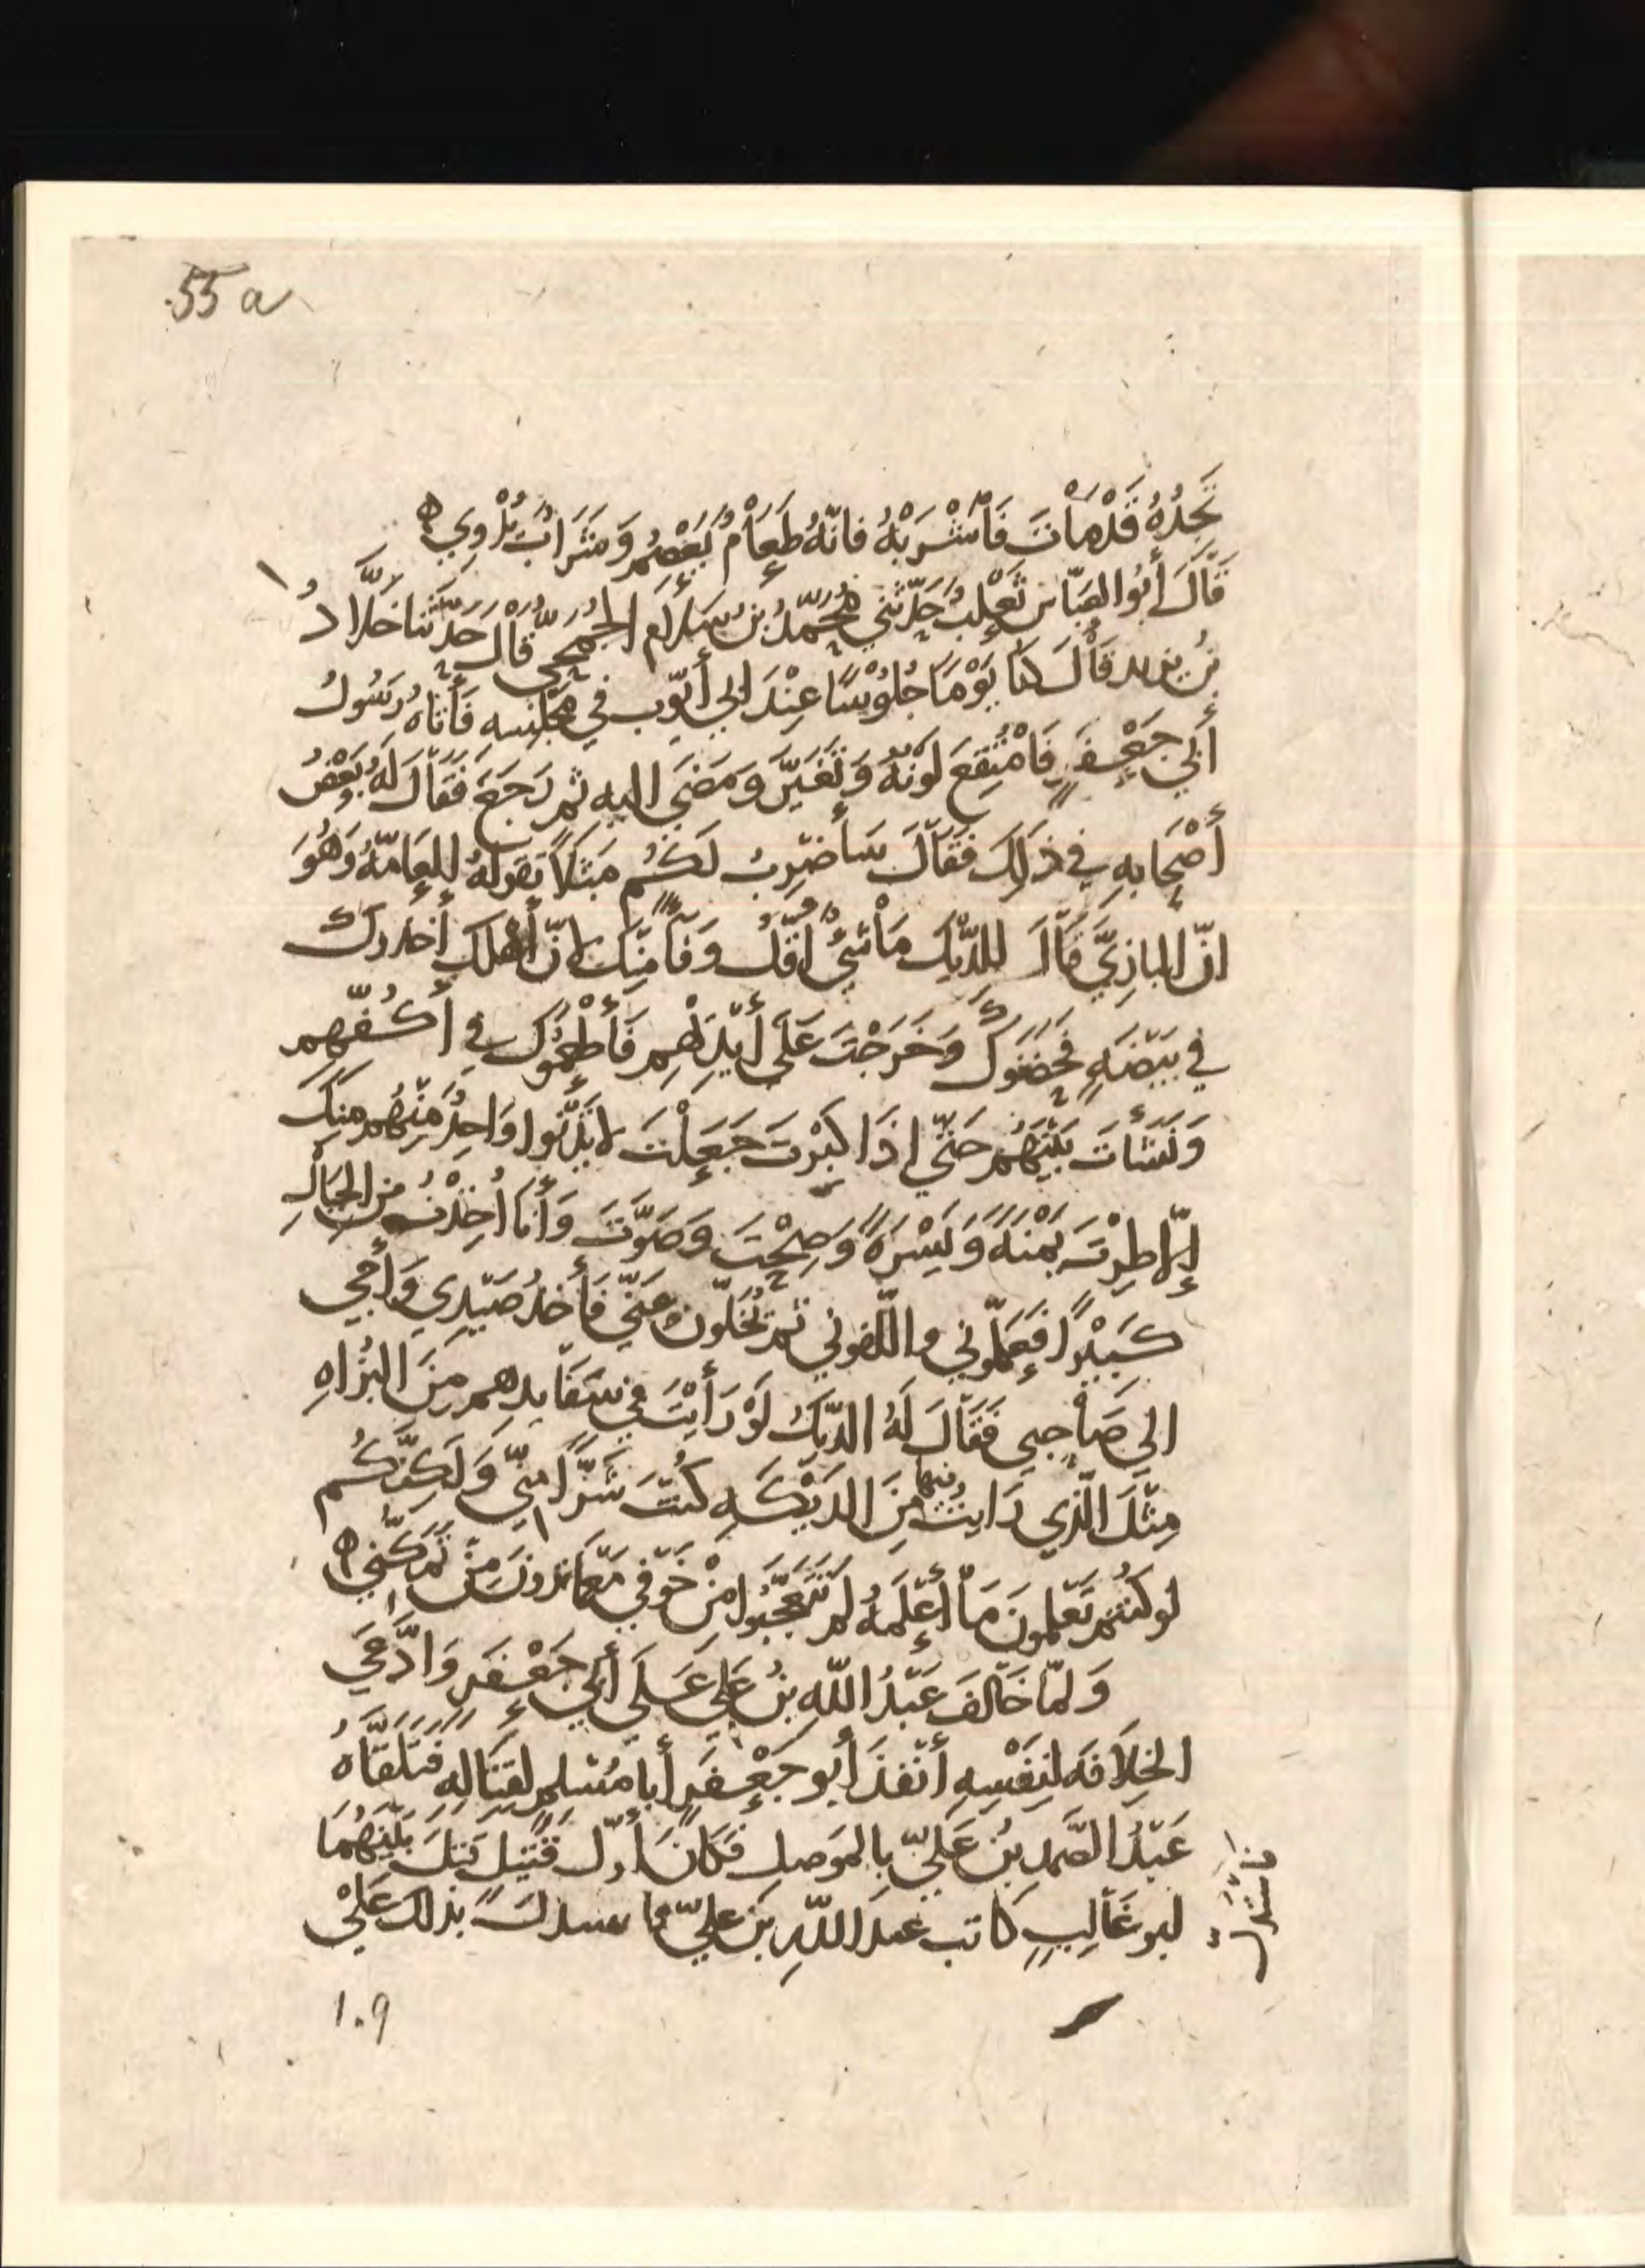 55 a
تَجِدُهُ قَدْ مَاتَ فَاشْرَبْهُ فانّهُ طَعَامٌ يَعْصِمُ وَشَرَابٌ يُرْوِي ه
قَالَ أَبُو العَبّاس ثَعْلَبُ حَدّثَنِي مُحَمّدُ بنُ سَلَّام الجُمَحِيّ قَالَ حَدّثَنا خَلَّادُ
بنُ يزيد قَالَ كنّا يَوْمًا جُلُوْسًا عِنْدَ ابي أَيّوب في مَجْلِسِه فَأَتَاهُ رَسُولُ
أَبِي جَعْفَرٍ فَامْتُقِعَ لَوْنُهُ وَتَغَيَّرَ وَمَضَى اليه ثم رَجَعَ فَقَالَ لَهُ بَعْضُ
أَصْحَابِهِ في ذَلِكَ فَقَالَ سَأَضْرِبُ لَكُم مَثَلًا تَقولهُ العَامّةُ وَهُوَ
انّ البازِيَّ قَالَ للدِّيْكِ مَا شَيْءٌ أَقَلُّ وَفَاءً مِنكَ لانّ أَهْلَكَ أَخَذوكَ
في بَيْضَةٍ فَحَضَنُوكَ وَخَرَجْتَ عَلَى أَيْدِيْهِم فَأَطْعَمُوكَ في أَكُفِّهِم
وَنَشَأْتَ بَيْنَهُم حَتّى اذَا كَبِرْتَ جَعَلْتَ لا يَدْنُوا وَاحِدٌ مِنْهُم مِنكَ
إلّا طِرْتَ يَمْنَةً وَيَسْرَةً وَصِحْتَ وَصَوَّتَ وَأَنَا أُخِذْتُ من الجِبَالِ
كَبِيْرًا فَعَلّمُوني والّفوني ثم تُخَلّونَ عَنّي فَأَخذُ صَيْدِي وَأَجِي
الى صَاحِبي فَقَالَ لَهُ الدّيْكُ لَوْ رَأَيْتَ في سَفَافِيدِهم مِنَ البُزَاهِ
مِثْلَ الّذِي رَايْتُ فيها مِنَ الدّيَكَهِ كُنْتَ شَرًّا مِنّي وَلَكِنَّكُم
لو كُنْتُم تَعْلمونَ مَا أَعْلَمهُ لم تَتَعَجَّبُوا مِنْ خَوْفِي مَعَ مَا تَرونَ مِنْ تَمَكُّنِي ه
وَلمّا خَالَفَ عَبْدُ اللّهِ بنُ عَلِي عَلَى أَبِي جَعْفَرٍ وَادَّعَى
الخِلَافَهَ لِنَفْسِهِ أَنْفَذَ أَبو جَعْفَرٍ أَبا مُسْلِمٍ لقِتَالِهِ فَتَلَقَّاهُ
عَبْدُ الصَّمَدِ بْنُ عَلِيّ بالمَوصِلِ فَكَانَ أوّل قَتِيْلٍ قُتِلَ بَيْنَهُمَا
ابو غَالِبٍ كَاتب عبد اللّهِ بن عليّ بذلك عَلَى
١٠٩